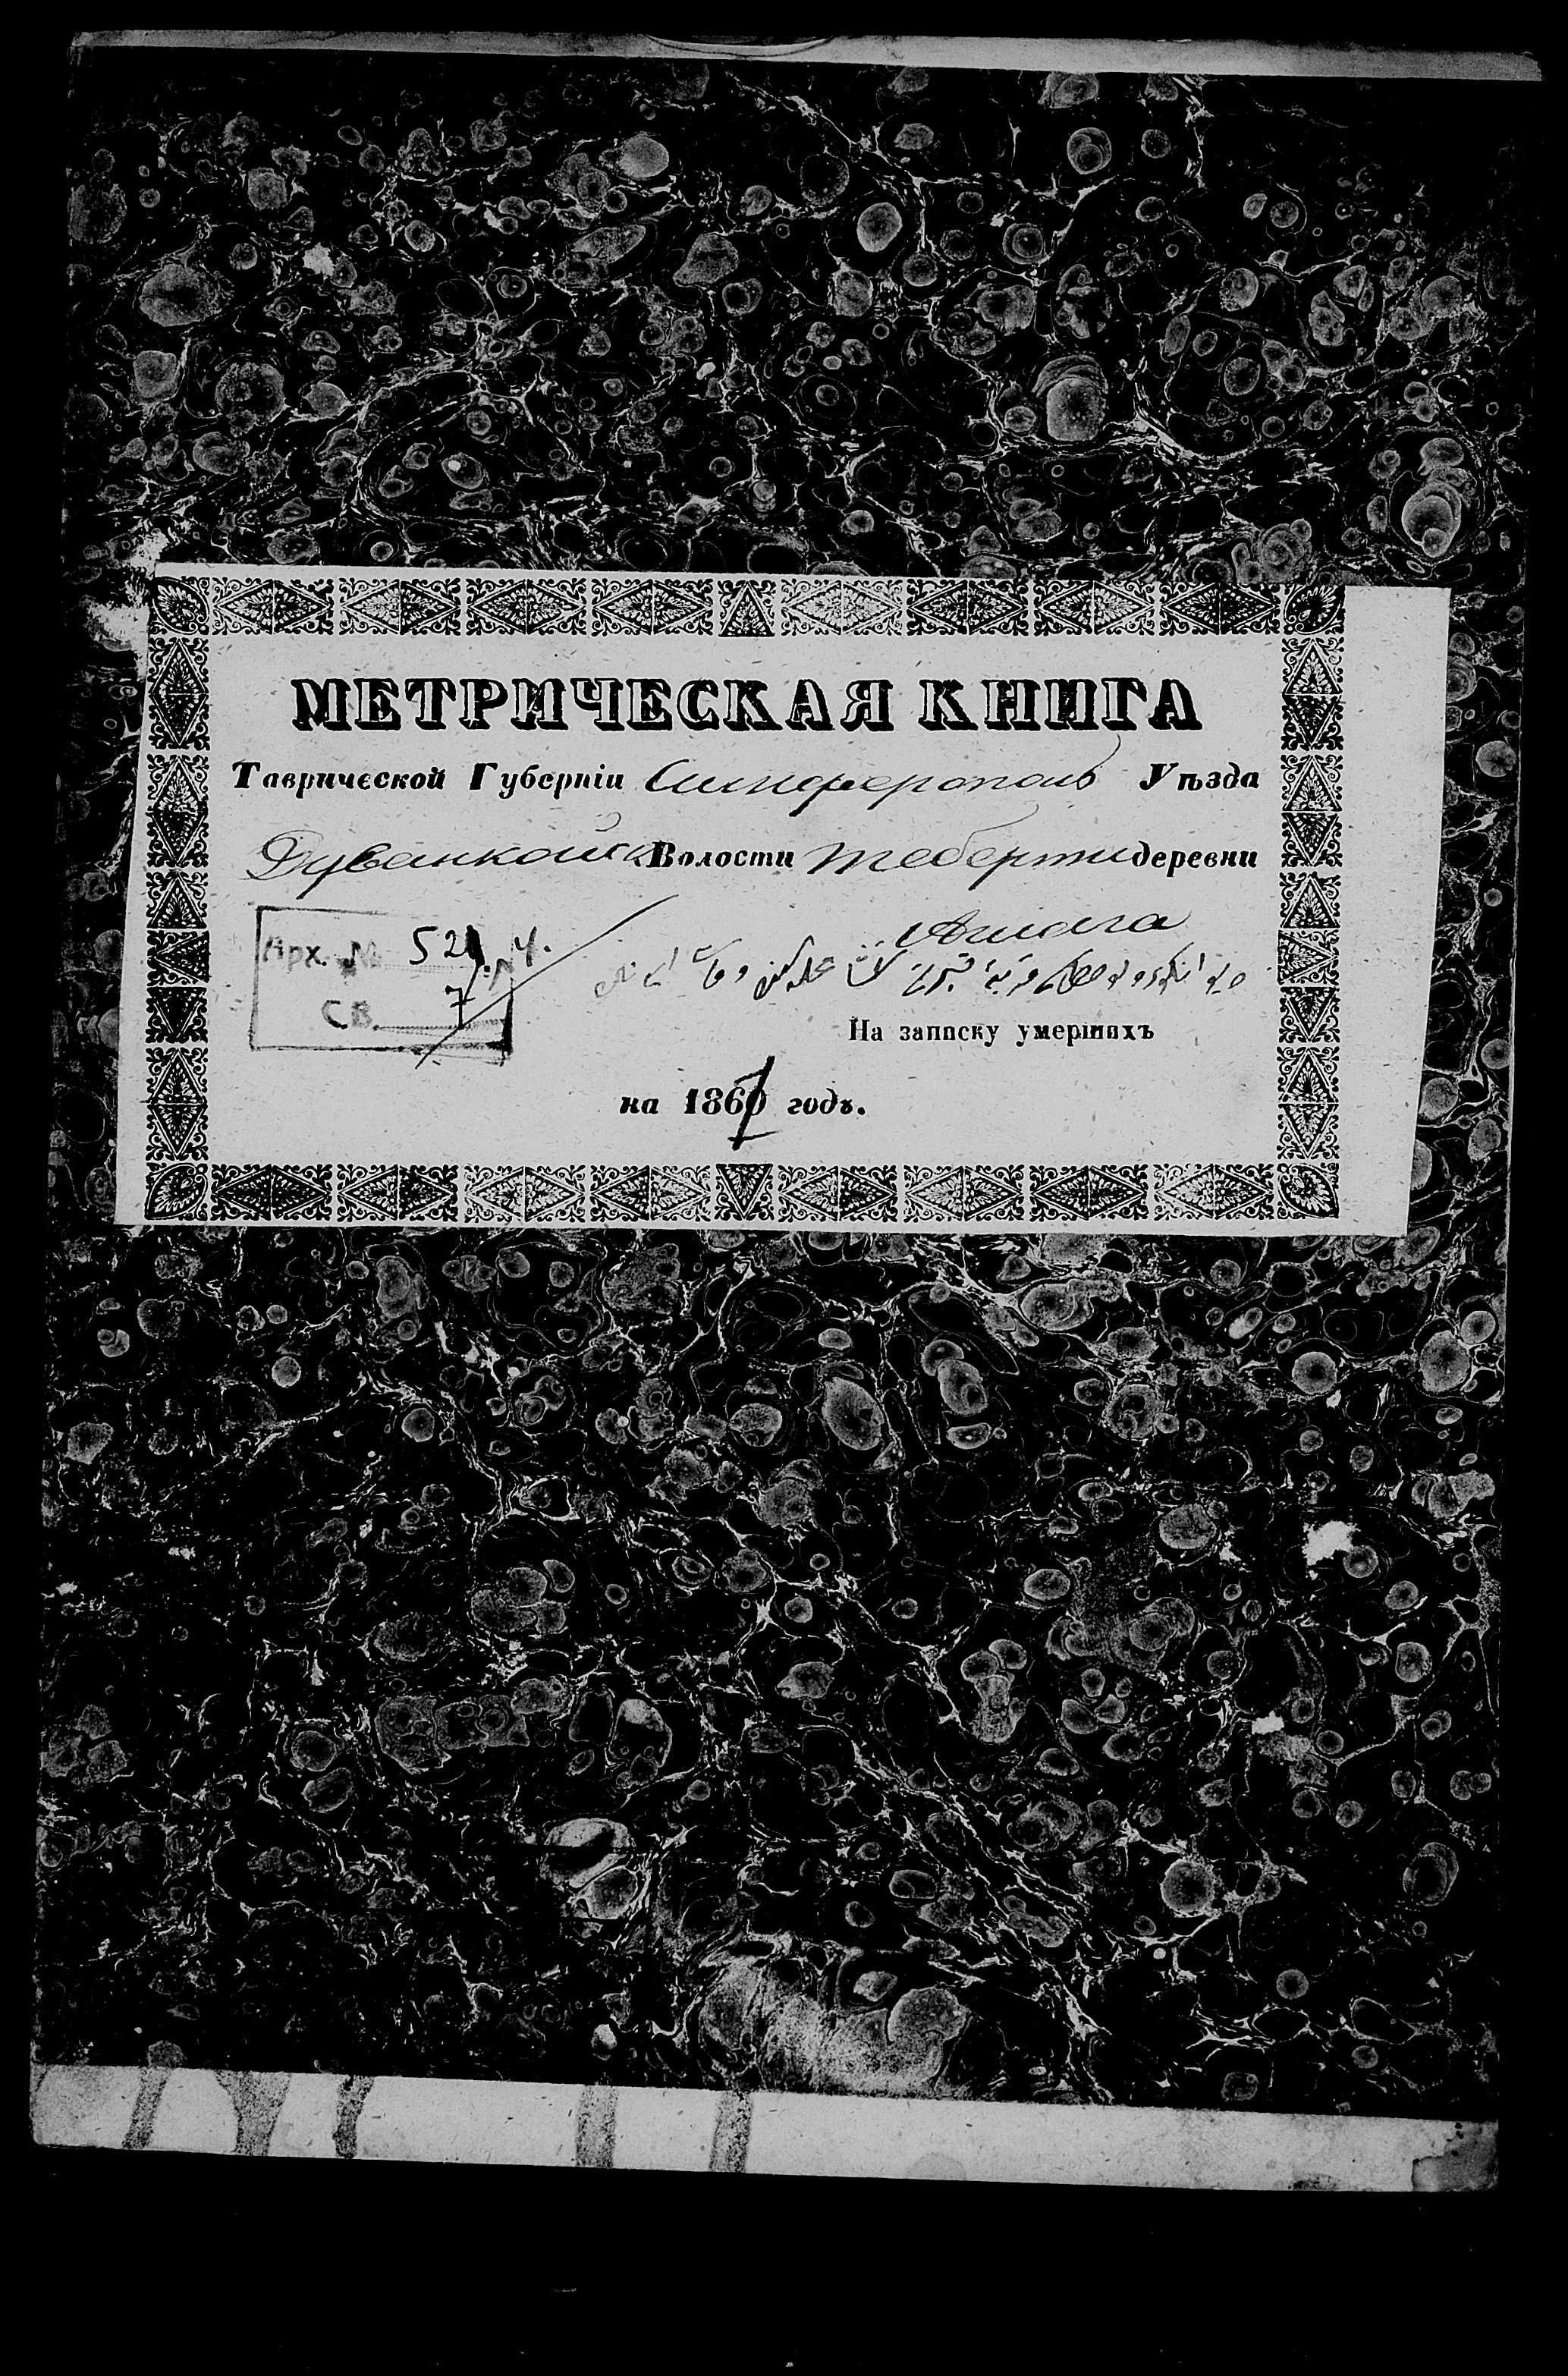 МЕТРИЧЕСКАЯ КНИГА
Таврической Губерніи Симферополь Уѣзда
Дуванкойск Волости Теберти деревни
Ашага
Арх. № 521 ч.
Св. 7
На записку умершихъ
на 1867 годъ.